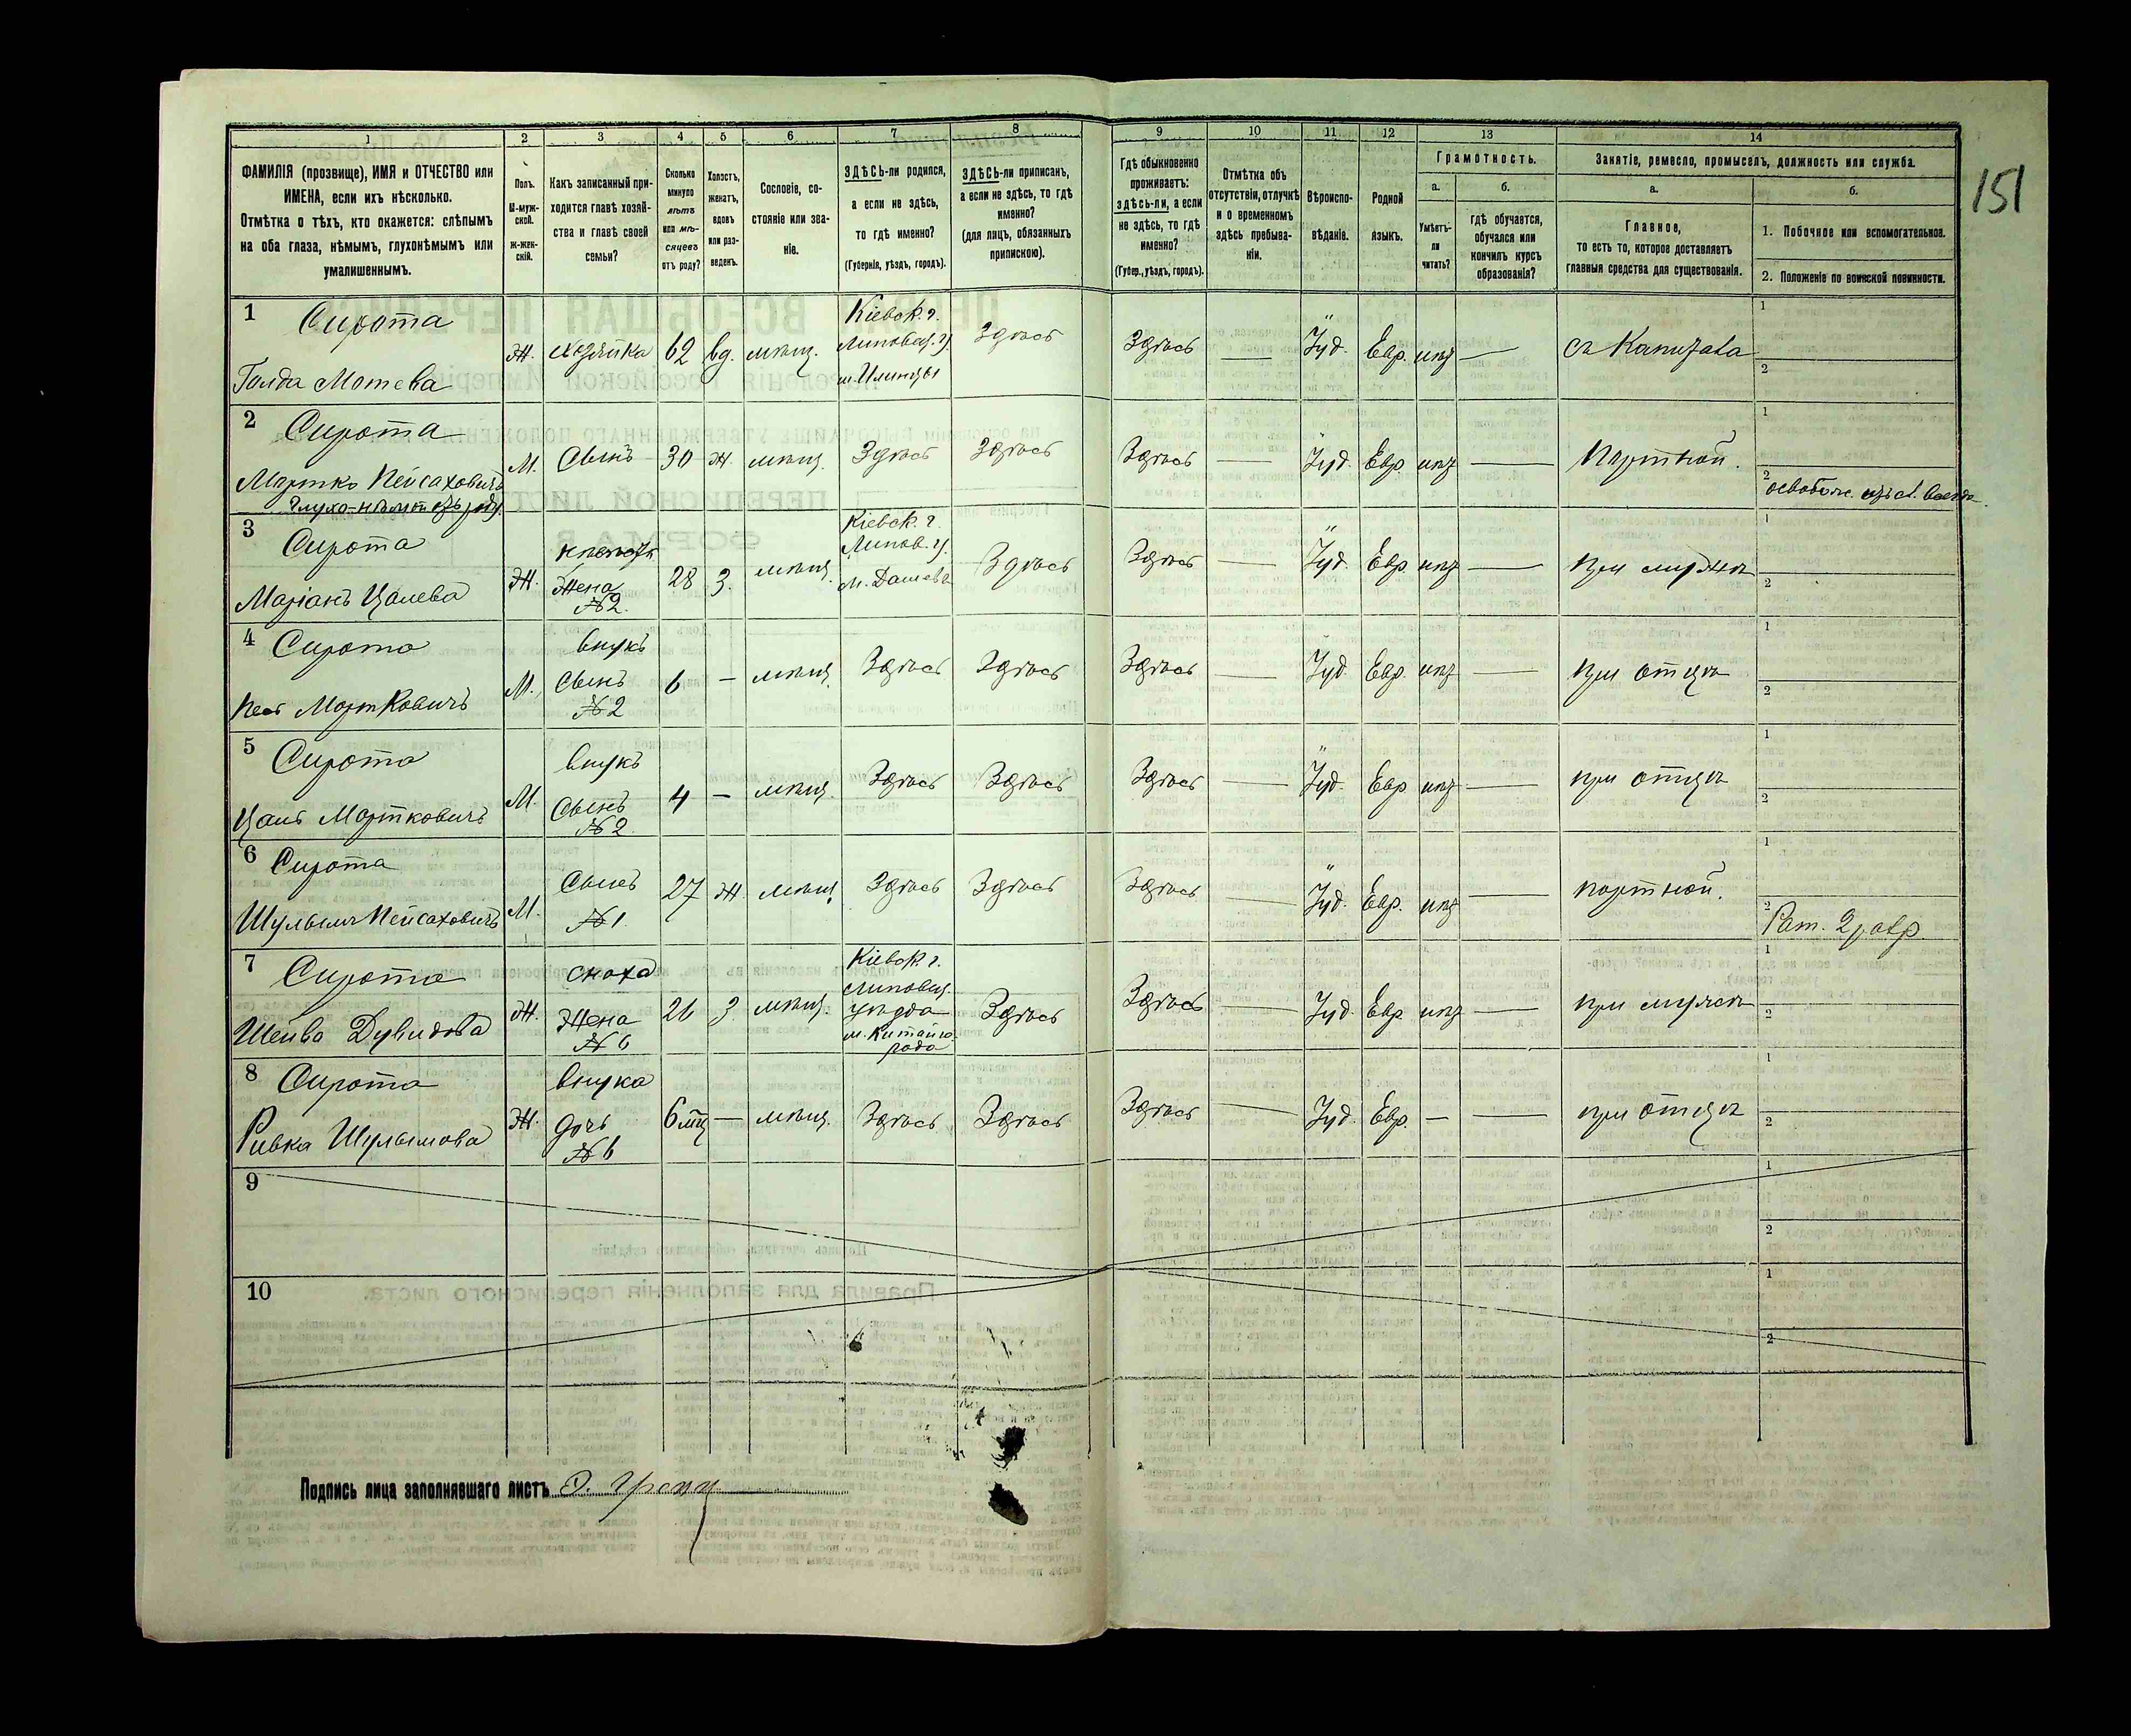 151
1 2 3 4 5 6 7 8 9 10 11 12 13 14
ФАМИЛІЯ (прозвище), ИМЯ и ОТЧЕСТВО или
ИМЕНА, если ихъ нѣсколько.
Отмѣтка о тѣхъ, кто окажется: слѣпымъ
на оба глаза, нѣмымъ, глухонѣмымъ или
умалишеннымъ.
Полъ.
М-муж-
ской.
Ж-жен-
скій.
Какъ записанный при-
ходится главѣ хозяй-
ства и главѣ своей
семьи?
Сколько
минуло
лѣтъ
или мѣ-
сяцевъ
отъ роду?
Холостъ,
женатъ,
вдовъ
или раз-
веденъ.
Сословіе, со-
стояніе или зва-
ніе.
ЗДѢСЬ-ли родился,
а если не здѣсь,
то гдѣ именно?
(Губернія, уѣздъ, городъ).
ЗДѢСЬ-ли приписанъ,
а если не здѣсь, то гдѣ
именно?
(для лицъ, обязанныхъ
припискою).
Гдѣ обыкновенно
проживаетъ:
здѣсь-ли, а если
не здѣсь, то гдѣ
именно?
(Губер., уѣздъ, городъ).
Отмѣтка объ
отсутствіи, отлучкѣ
и о временномъ
здѣсь пребыва-
ніи.
Вѣроиспо-
вѣданіе.
Родной
языкъ.
Грамотность.
а.
Умѣетъ-
ли
читать?
б.
гдѣ обучается,
обучался или
кончилъ курсъ
образованія?
Занятіе, ремесло, промыселъ, должность или служба.
а.
Главное,
то есть то, которое доставляетъ
главныя средства для существованія.
б.
1. Побочное или вспомогательное.
2. Положеніе по воинской повинности.
1 Сирота
Голда Мотева
Ж. хозяйка 62 вд. мѣщ.
Кіевск. г.
Липовец. у.
м. Илинцы
Здѣсь Здѣсь — Іуд. Евр. — съ Капитала
1
2
2 Сирота
Мортко Пейсаховичъ
М. Сынъ 30 ж. мѣщ. Здѣсь Здѣсь Здѣсь — Іуд. Евр. — Портной.
1
2
3 Сирота
Маріанъ Цалева
Ж.
Жена
№2.
28 З. мѣщ.
Кіевск. г.
Липов. у.
м. Дашева
Здѣсь Здѣсь — Іуд. Евр. — при мужѣ
1
2
4 Сирота
Мортковичъ
М.
внукъ
Сынъ
№2
6 — мѣщ. Здѣсь Здѣсь Здѣсь — Іуд. Евр. — при отцѣ
1
2
5 Сирота
Цаль Мортковичъ
М.
внукъ
Сынъ
№2
4 — мѣщ. Здѣсь Здѣсь Здѣсь — Іуд. Евр — при отцѣ
1
2
6 Сирота
Шулымъ Пейсаховичъ
М.
Сынъ
№1
27 ж. мѣщ. Здѣсь Здѣсь Здѣсь — Іуд. Евр. — портной.
1
2 Рат. 2 разр.
7 Сирота
Шейва Дувидова
Ж.
сноха
Жена
№6
26 З мѣщ.
Кіевск. г.
Липовец.
уѣзда
м. Китайго-
рода
Здѣсь Здѣсь — Іуд. Евр — при мужѣ
1
2
8 Сирота
Ривка Шулымова
Ж.
внука
дочь
№6
6 мц — мѣщ. Здѣсь Здѣсь Здѣсь — Іуд. Евр. — — при отцѣ
1
2
9
1
2
10
1
2
Подпись лица заполнявшаго листъ